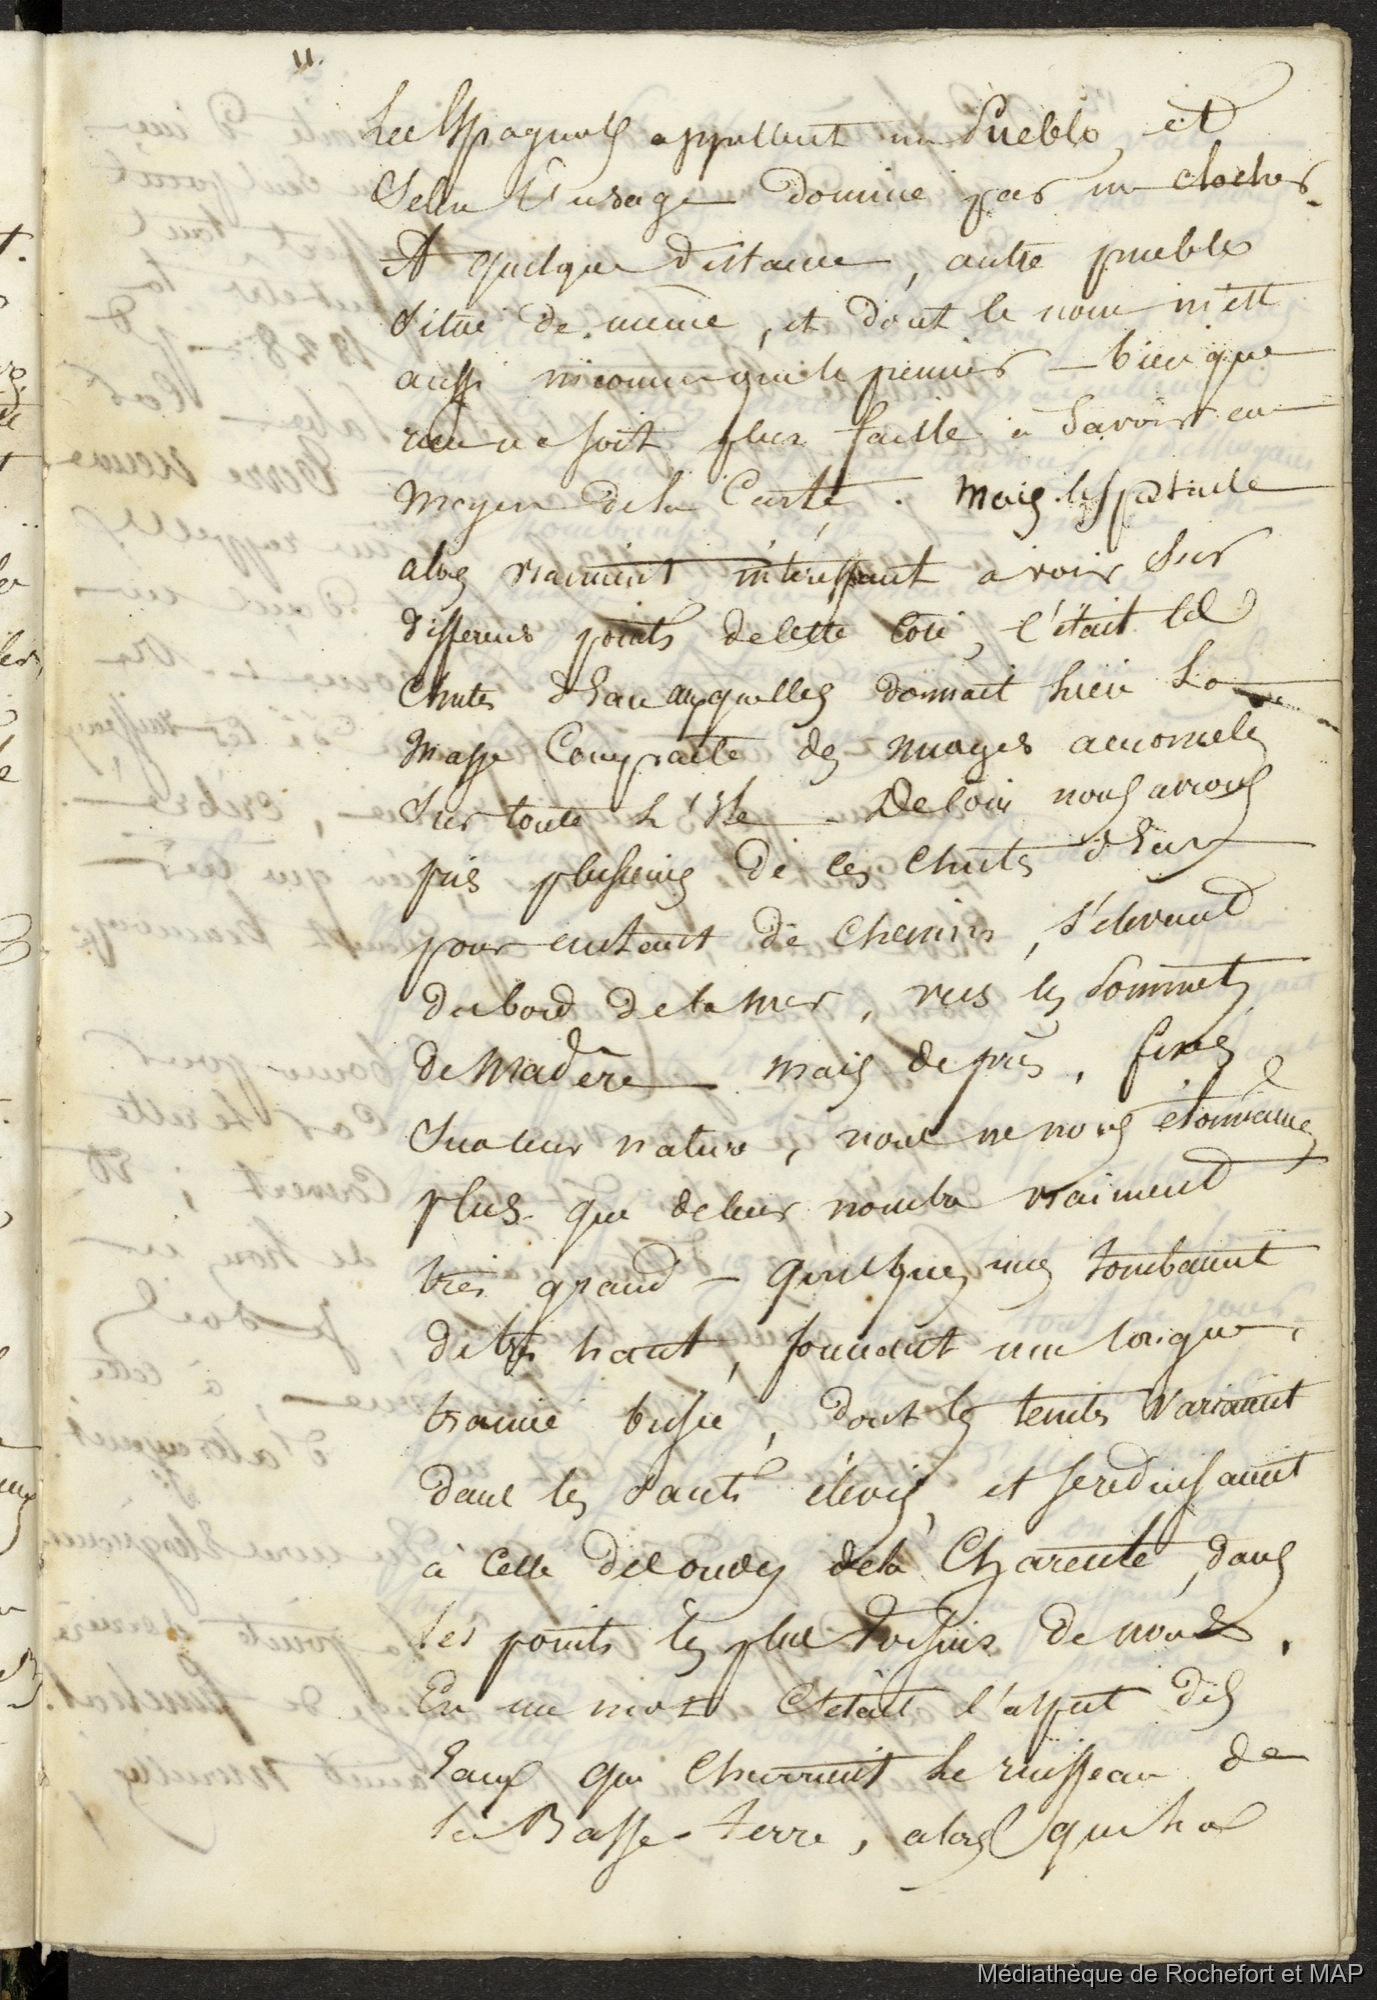 11.
Les Espagnols appellent un Pueblo, et
Selon l'usage dominé par un clocher.
A quelque distance, autre pueblo
Situé de même, et dont le nom m'est
aussi inconnu que le premier – bien que
rien ne soit plus facile à Savoir au
Moyen de la Carte. Mais le spectacle
alors vraiment intéressant à voir Sur
differens points de cette Côte, c'était les
Chutes d'Eau auxquelles donnait lieu La
Masse Compacte des nuages amoncelés
Sur toute L'Isle. De loin nous avions
pris plusieurs de ces Chutes d'Eau
pour autant de Chemins, s'élevant
du bord de la Mer, vers les Sommets
de Madère. Mais de près, fixés
Sur leur nature, nous ne nous étonnâmes
plus que de leur nombre vraiment
très grand – quelques unes tombaient
de très haut, formant une longue
trainée brisée, dont les teintes variaient
dans les Sauts élevés, et se réduisaient
à celle des ondes de la Charente, dans
les points les plus Voisins de nous.
En un mot C'était l'aspect des
Eaux que Charrient le ruisseau de
la Basse-terre, alors qu'il a
Médiathèque de Rochefort et MAP